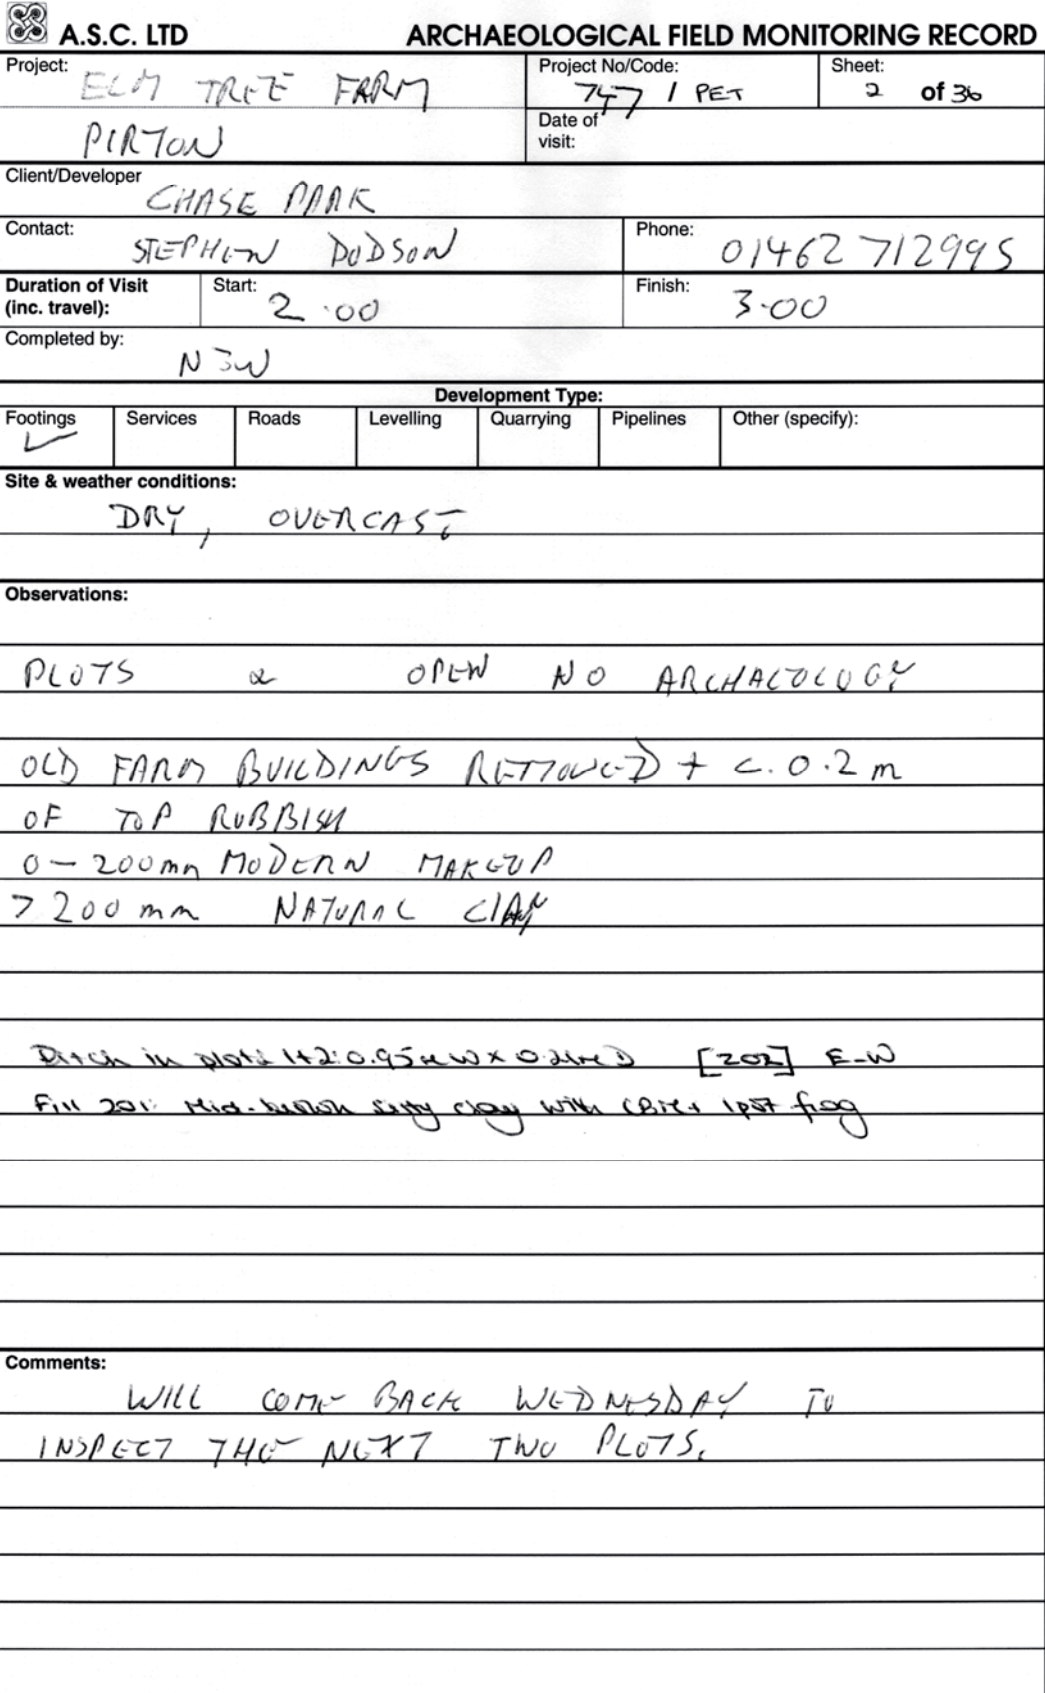 A.S.C. LTD ARCHAEOLOGICAL FIELD MONITORING RECORD
Project: ELM TREE FARM
PIRTON
Project No/Code: 747 / PET
Sheet: 2 of 36
Date of visit:
Client/Developer CHASE PARK
Contact: STEPHEN DODSON
Phone: 01462 712995
Duration of Visit (inc. travel):
Start: 2.00
Finish: 3.00
Completed by:
Development Type:
Footings ✓ Services Roads Levelling Quarrying Pipelines Other (specify):
Site & weather conditions:
DRY, OVERCAST
Observations:
PLOTS OPEN NO ARCHAEOLOGY
OLD FARM BUILDINGS REMOVED + C. 0.2 m
OF TOP RUBBISH
0 – 200mm MODERN MAKEUP
> 200 mm NATURAL CLAY
Ditch in plots 1+2: 0.95m W x D [202] E-W
Fill 201: Mid-brown silty clay with CBM + 1 pot frag
Comments:
WILL COME BACK WEDNESDAY TO
INSPECT THE NEXT TWO PLOTS.